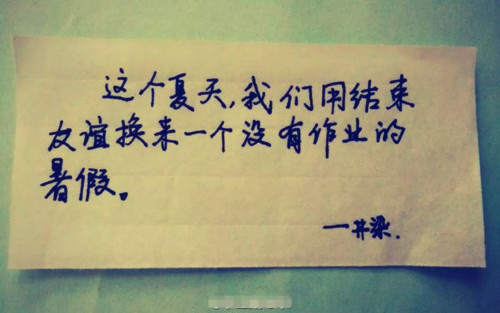 这个夏天，我们用结束
友谊换来一个没有作业的
暑假。
一井染.